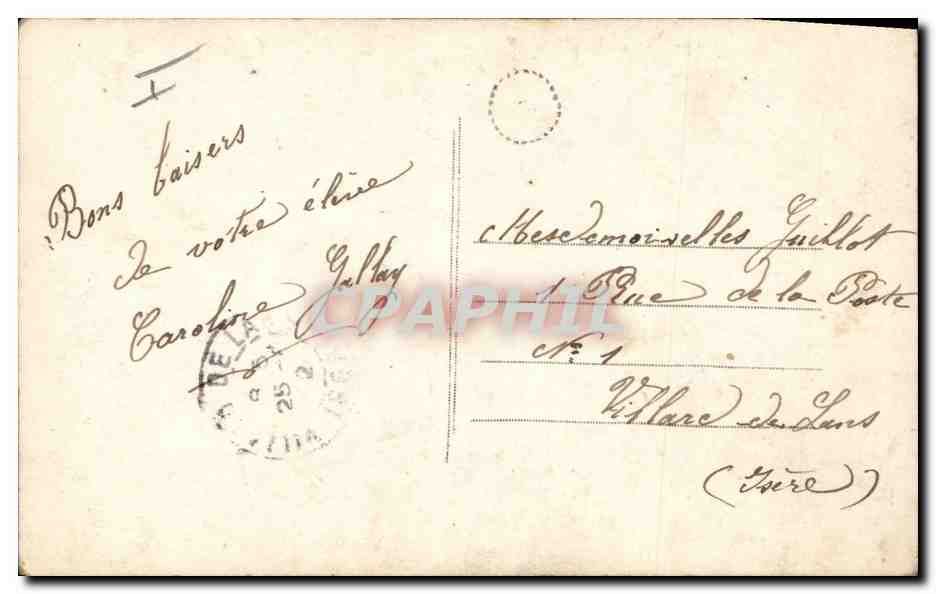 Bons baisers
de votre élève
Caroline Gallay
Mesdemoiselles Guillot
1 Rue de la Poste
No 1
Villard de Lans
(Isère)
CPAPHIL
DE LA
25